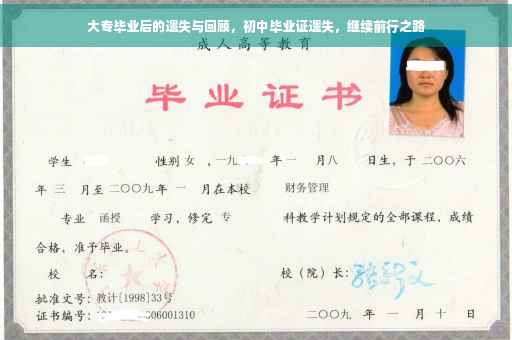 大专毕业后的遗失与回顾，初中毕业证遗失，继续前行之路
成人高等教育
毕业证书
学生 性别 女 ，一九 年 一 月 八 日生，于 二〇〇六
年 三 月至 二〇〇九 年 一 月在本校 财务管理
专业 函授 学习，修完 专 科教学计划规定的全部课程，成绩
合格，准予毕业。
校 名： 校（院）长：
批准文号：教计[1998]33号
证书编号： 06001310 二〇〇九 年 一 月 十 日